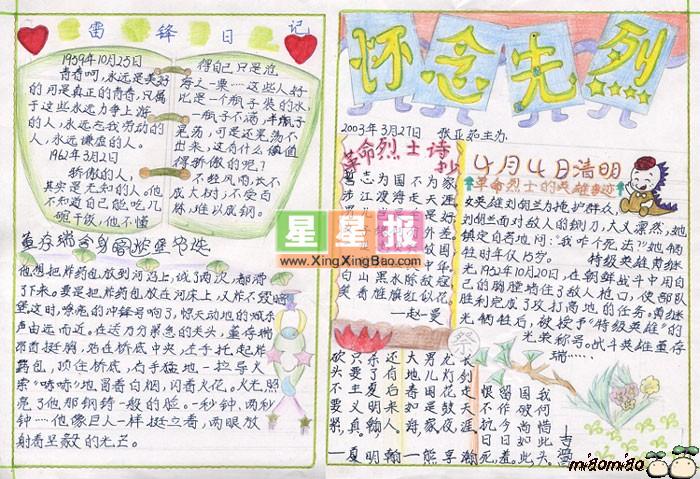 雷锋日记
1959年10月25日
青春呵,永远是美好
的,可是真正的青春,只属
于这些永远力争上游
的人,永远忘我劳动的
人,永远谦虚的人。
1962年3月2日
骄傲的人,
其实是无知的人。他
不知道自己能吃几
碗干饭,他不懂
得自己只是沧
海之一粟……这些人好
比是一个瓶子装的水,
一瓶子不满,半瓶子
晃荡,可是还晃荡不
出来,这有什么值
得骄傲的呢?
不经风雨,长不
成大树,不受百
炼,难以成钢。
董存瑞舍身
他想把炸药包放到河沿上,试了两次,都滑
了下来。要是把炸药包放在河床上,又炸不毁暗
堡这时,嘹亮的冲锋号响了,惊天动地的喊杀
声由远而近。在这万分紧急的关头,董存瑞
昂首挺胸,站在桥底中央,左手托起炸
药包,顶住桥底,右手猛地一拉导火
索"哧哧"地冒着白烟,闪着火花。火光照
亮了他那钢铸一般的脸。一秒钟、两秒
钟……他像巨人一样挺立着,两眼放
射着坚毅的光芒。
怀念先烈
2003年3月27日 张亚茹主办
革命烈士诗抄
誓志为国不为家
涉江渡海走天涯
白山黑水除敌寇
笑看旌旗红似花
—赵一曼
4月4日清明
革命烈士的英雄事迹
女英雄刘胡兰为掩护群众,
刘胡兰面对敌人的铡刀,大义凛然,她
镇定自若地问:"我咋个死法?"她牺
牲时年仅15岁。
特级英雄黄继
光,1952年10月20日,在朝鲜战斗中用自
己的胸膛堵住了敌人枪口,使部队
胜利完成了攻打高地的任务。黄继
光牺牲后,被授予"特级英雄"的
光荣称号。战斗英雄董存
瑞……
祭
砍头不要紧,
只要主义真,
还有后来人。
—夏明翰
大地春如海
男儿国是家
龙灯花鼓夜
长剑走天涯
—熊亨瀚
恨不抗日死,
留作今日羞。
国破尚如此,
我何惜此头。
吉鸿昌
星星报
www.XingXingBao.com
miaomiao